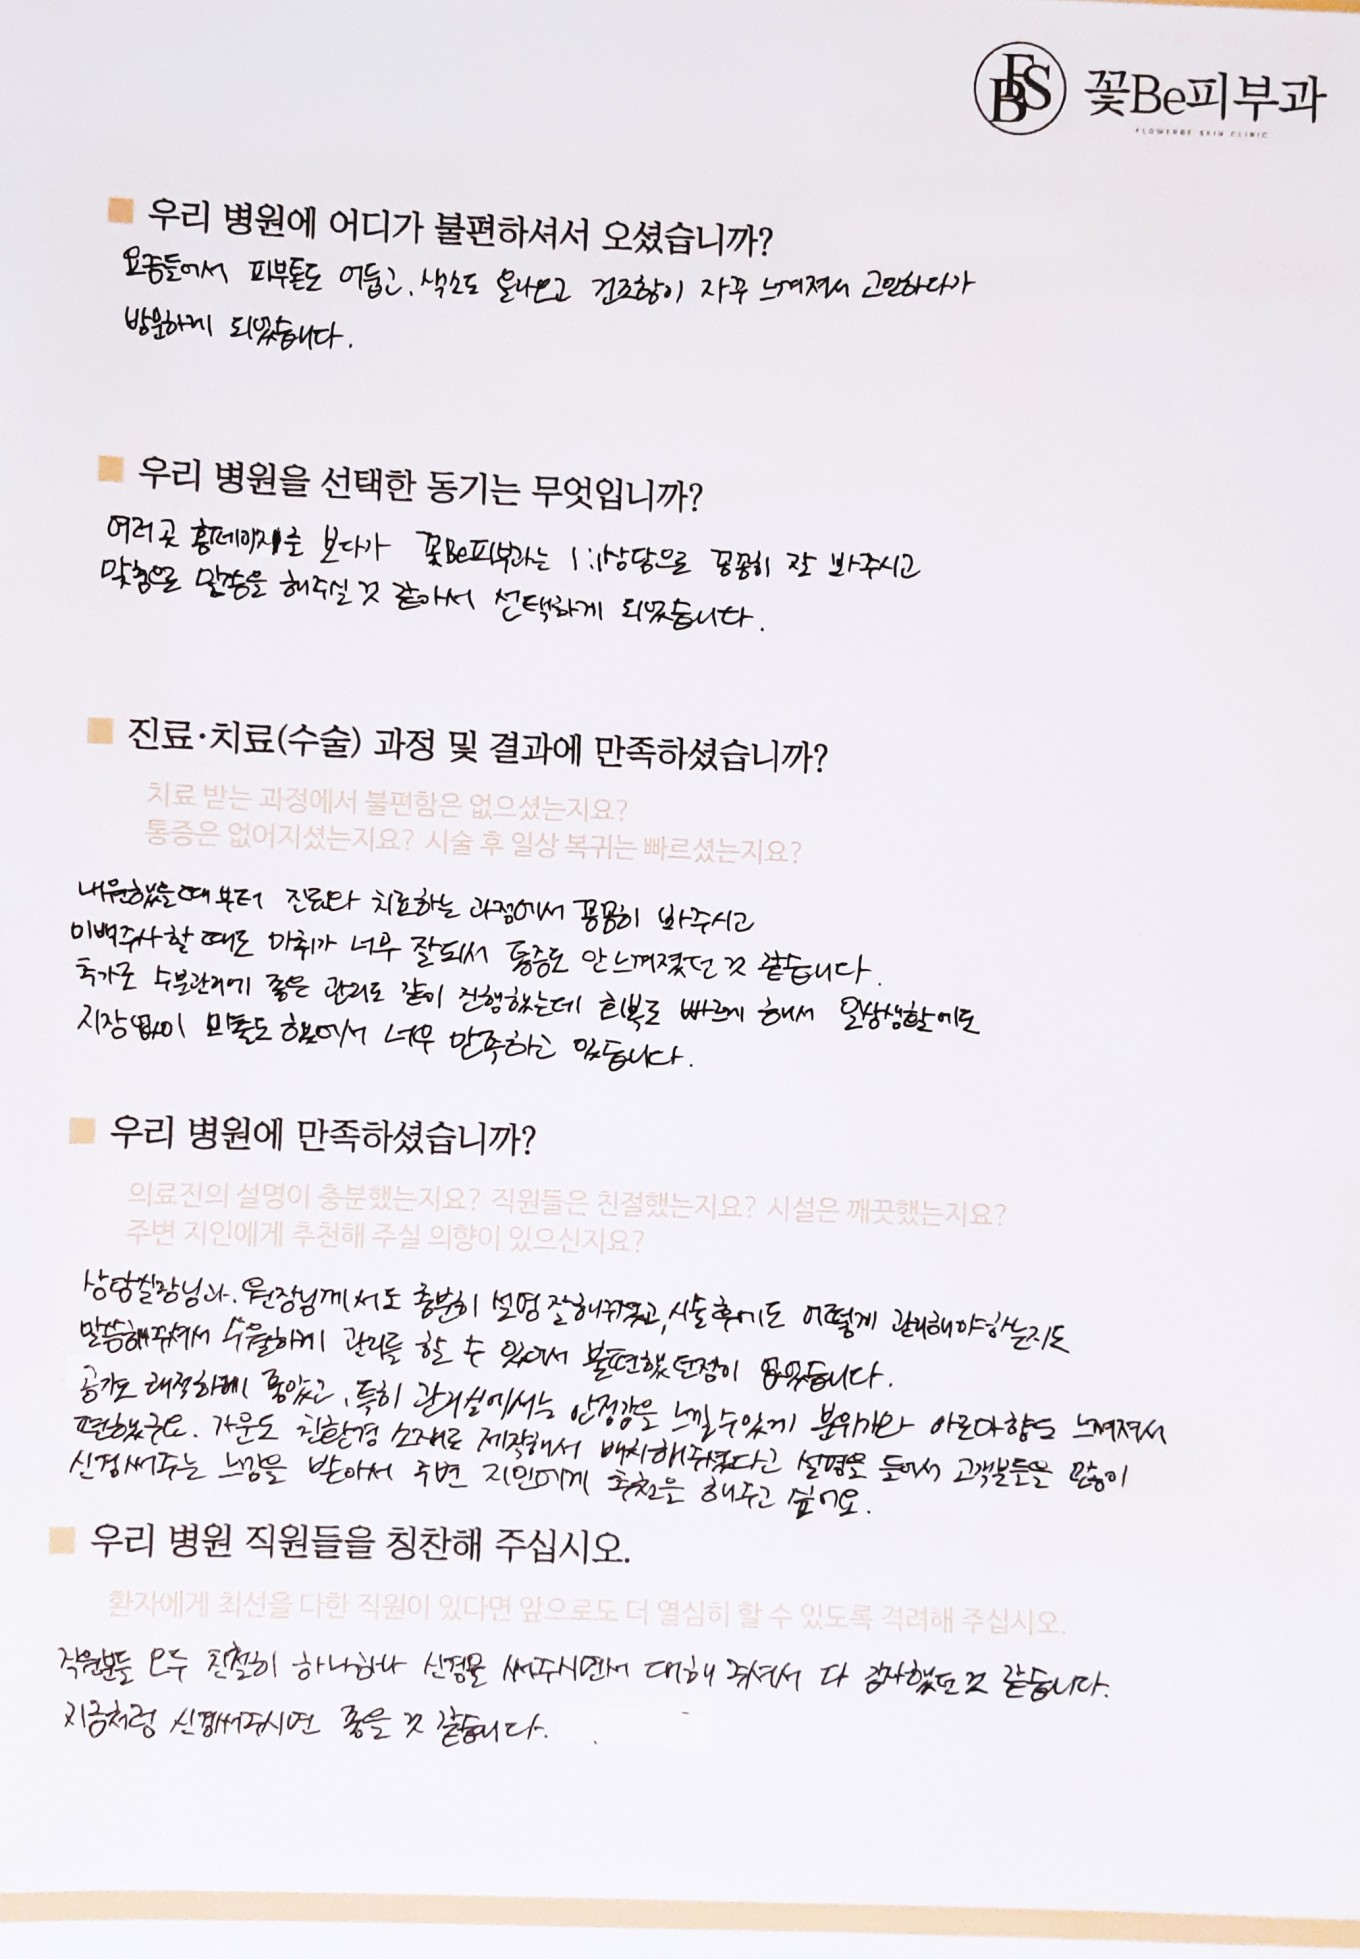 FBS 꽃Be피부과
FLOWERBE SKIN CLINIC
우리 병원에 어디가 불편하셔서 오셨습니까?
요즘들어서 피부톤도 어둡고, 색소도 올라오고 건조함이 자꾸 느껴져서 고민하다가
방문하게 되었습니다.
우리 병원을 선택한 동기는 무엇입니까?
여러곳 홈페이지를 보다가 꽃Be피부과는 1:1상담으로 꼼꼼히 잘 봐주시고
맞춤으로 말씀을 해주실 것 같아서 선택하게 되었습니다.
진료·치료(수술) 과정 및 결과에 만족하셨습니까?
치료 받는 과정에서 불편함은 없으셨는지요?
통증은 없어지셨는지요? 시술 후 일상 복귀는 빠르셨는지요?
내원했을때부터 진료와 치료하는 과정에서 꼼꼼히 봐주시고
미백주사할 때도 마취가 너무 잘되서 통증도 안느껴졌던 것 같습니다.
추가로 수분관리에 좋은 관리도 같이 진행했는데 회복도 빠르게 해서 일상생활에도
지장없이 만족하고 있습니다.
우리 병원에 만족하셨습니까?
의료진의 설명이 충분했는지요? 직원들은 친절했는지요? 시설은 깨끗했는지요?
주변 지인에게 추천해 주실 의향이 있으신지요?
상담실장님과, 원장님께서도 충분히 설명 잘해주셨고, 시술후에도 어떻게 관리해야하는지도
말씀해주셔서 수월하게 관리를 할 수 있어서 불편했던점이 없었습니다.
공기도 쾌적하게 좋았고, 특히 관리실에서는 안정감을 느낄수있게 분위기와 아로마향도 느껴져서
편했군요. 가운도 친환경 소재로 제작해서 배치해주셨다고 설명을 들어서 고객분들을 많이
신경써주는 느낌을 받아서 주변 지인에게 추천을 해주고 싶어요.
우리 병원 직원들을 칭찬해 주십시오.
환자에게 최선을 다한 직원이 있다면 앞으로도 더 열심히 할 수 있도록 격려해 주십시오.
직원분들 모두 친절히 하나하나 신경을 써주시면서 대해 주셔서 다 감사했던것 같습니다.
지금처럼 신경써주시면 좋을 것 같습니다.